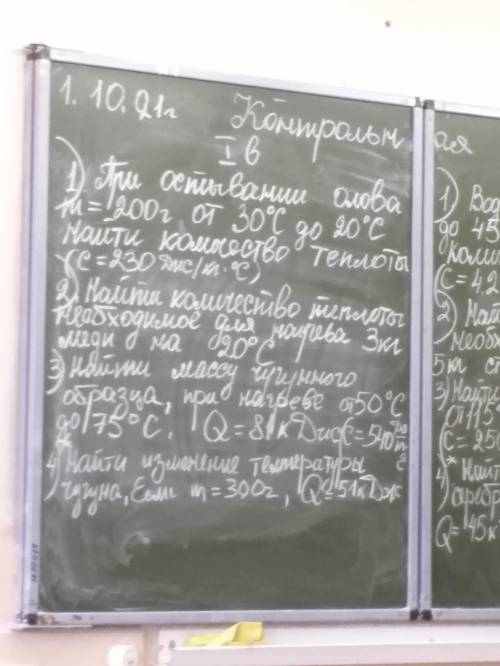 1.10.21г Контрольн ая
I в
1) При остывании олова
m = 200г от 30°С до 20°С
найти количество теплоты
(С = 230 Дж/кг·°С)
2) Найти количество теплоты
необходимое для нагрева 3кг
меди на 20°С
3) Найти массу чугунного
образца, при нагреве от 50°С
до 75°С. Q = 81кДж С = 540
4)* Найти изменение температуры
чугуна, Если m = 300г, Q = 51кДж
1) Вод
до 45
коли
(С = 4,2
2) Най
необх
5кг ст
3) Найти
от 115
(С = 25
4)* Найт
сереб
Q = 45к